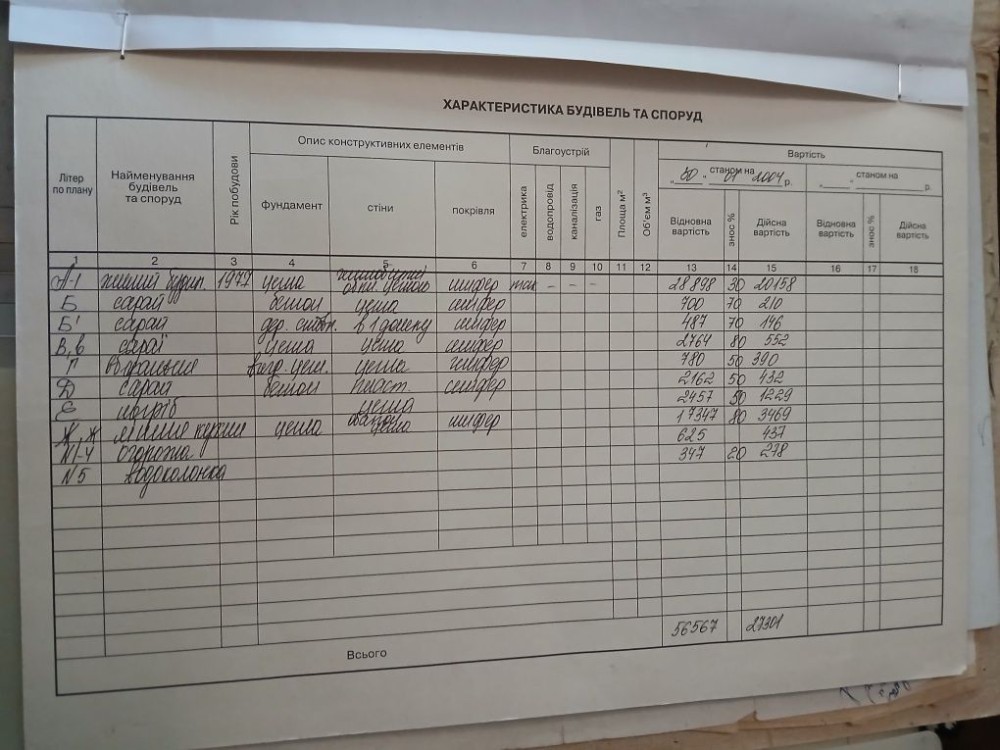 ХАРАКТЕРИСТИКА БУДІВЕЛЬ ТА СПОРУД
Літер по плану Найменування будівель та споруд Рік побудови Опис конструктивних елементів Благоустрій Площа м² Об'єм м³ Вартість
фундамент стіни покрівля електрика водопровід каналізація газ
„30" станом на 01 2004 р. „ " станом на р.
Відновна вартість знос % Дійсна вартість Відновна вартість знос % Дійсна вартість
1 2 3 4 5 6 7 8 9 10 11 12 13 14 15 16 17 18
А-1 жилий будин. 1977 цегла цеглою шифер так - - - 28898 30 20158
Б сарай бетон цегла шифер 700 70 210
Б' сарай дер. стовп. в 1 дошку шифер 487 70 146
В, в сарай цегла цегла шифер 2764 80 552
Г цегла шифер 780 50 390
Д сарай бетон пласт. шифер 2162 50 432
Є погріб цегла 2457 50 1229
Ж, ж літня кухня цегла цегла шифер 17347 80 3469
N1-4 огорожа 625 437
N5 водоколонка 347 20 278
Всього 56567 27301